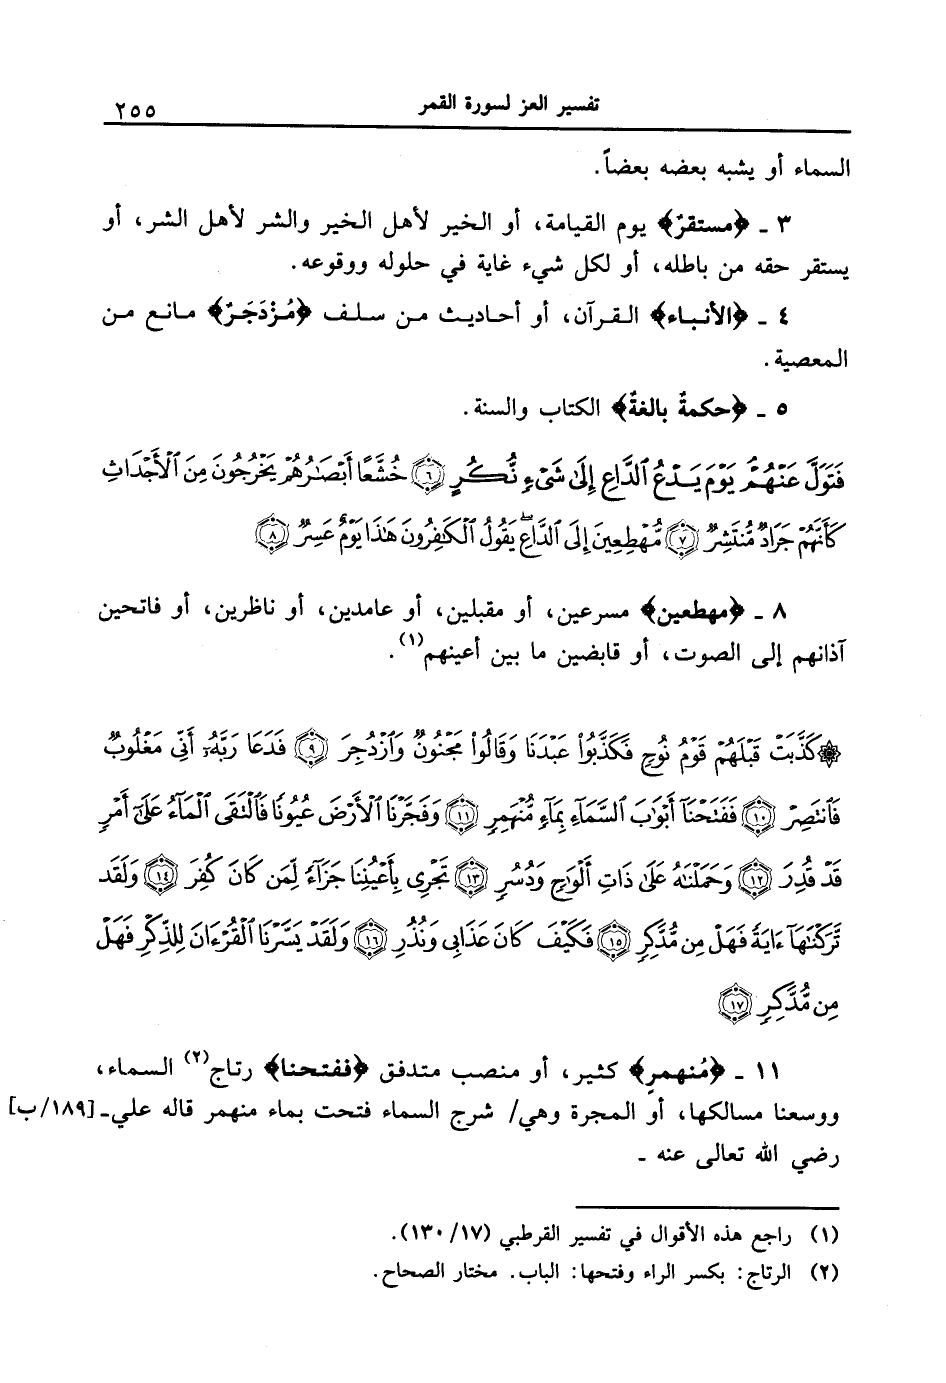 تفسير العز لسورة القمر ٢٥٥
السماء أو يشبه بعضه بعضاً.
٣ ـ ﴿مستقرٌ﴾ يوم القيامة، أو الخير لأهل الخير والشر لأهل الشر، أو
يستقر حقه من باطله، أو لكل شيء غاية في حلوله ووقوعه.
٤ ـ ﴿الأنباء﴾ القرآن، أو أحاديث من سلف ﴿مُزْدَجَرٌ﴾ مانع من
المعصية.
٥ ـ ﴿حكمةٌ بالغةٌ﴾ الكتاب والسنة.
فَتَوَلَّ عَنْهُمْ يَوْمَ يَدْعُ ٱلدَّاعِ إِلَىٰ شَىْءٍ نُّكُرٍ ﴿٦﴾ خُشَّعًا أَبْصَـٰرُهُمْ يَخْرُجُونَ مِنَ ٱلْأَجْدَاثِ
كَأَنَّهُمْ جَرَادٌ مُّنتَشِرٌ ﴿٧﴾ مُّهْطِعِينَ إِلَى ٱلدَّاعِ ۖ يَقُولُ ٱلْكَـٰفِرُونَ هَـٰذَا يَوْمٌ عَسِرٌ ﴿٨﴾
٨ ـ ﴿مهطعين﴾ مسرعين، أو مقبلين، أو عامدين، أو ناظرين، أو فاتحين
آذانهم إلى الصوت، أو قابضين ما بين أعينهم(١).
۞ كَذَّبَتْ قَبْلَهُمْ قَوْمُ نُوحٍ فَكَذَّبُوا۟ عَبْدَنَا وَقَالُوا۟ مَجْنُونٌ وَٱزْدُجِرَ ﴿٩﴾ فَدَعَا رَبَّهُۥٓ أَنِّى مَغْلُوبٌ
فَٱنتَصِرْ ﴿١٠﴾ فَفَتَحْنَآ أَبْوَٰبَ ٱلسَّمَآءِ بِمَآءٍ مُّنْهَمِرٍ ﴿١١﴾ وَفَجَّرْنَا ٱلْأَرْضَ عُيُونًا فَٱلْتَقَى ٱلْمَآءُ عَلَىٰٓ أَمْرٍ
قَدْ قُدِرَ ﴿١٢﴾ وَحَمَلْنَـٰهُ عَلَىٰ ذَاتِ أَلْوَٰحٍ وَدُسُرٍ ﴿١٣﴾ تَجْرِى بِأَعْيُنِنَا جَزَآءً لِّمَن كَانَ كُفِرَ ﴿١٤﴾ وَلَقَد
تَّرَكْنَـٰهَآ ءَايَةً فَهَلْ مِن مُّدَّكِرٍ ﴿١٥﴾ فَكَيْفَ كَانَ عَذَابِى وَنُذُرِ ﴿١٦﴾ وَلَقَدْ يَسَّرْنَا ٱلْقُرْءَانَ لِلذِّكْرِ فَهَلْ
مِن مُّدَّكِرٍ ﴿١٧﴾
١١ ـ ﴿مُنهمرٍ﴾ كثير، أو منصب متدفق ﴿ففتحنا﴾ رتاج(٢) السماء،
ووسعنا مسالكها، أو المجرة وهي/ شرج السماء فتحت بماء منهمر قاله علي ـ [١٨٩/ب]
رضي الله تعالى عنه ـ
(١) راجع هذه الأقوال في تفسير القرطبي (١٣٠/١٧).
(٢) الرتاج: بكسر الراء وفتحها: الباب. مختار الصحاح.